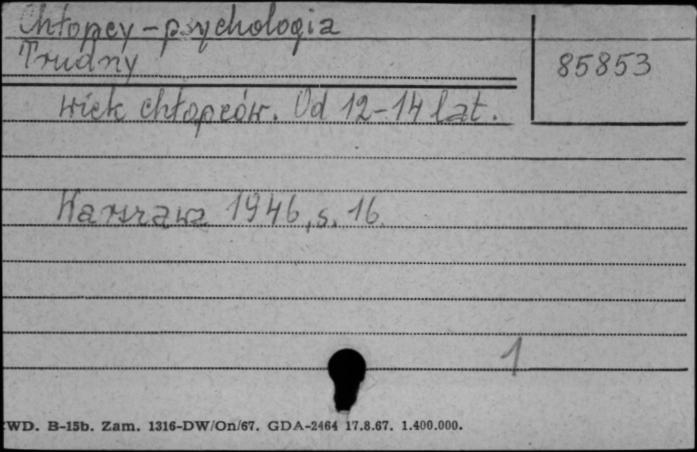 Chłopcy - psychologia
Trudny
85853
wiek chłopców. Od 12-14 lat.
Warszawa 1946, s. 16.
1
WD. B-15b. Zam. 1316-DW/On/67. GDA-2464 17.8.67. 1.400.000.